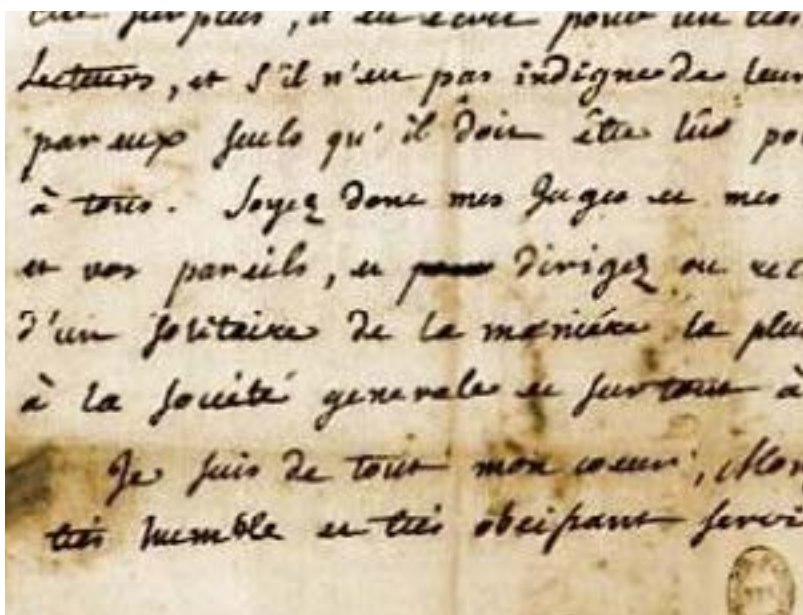 surplus, il en écrit pour un
Lecteurs, et s'il n'en pas indigne de leur
par eux seuls qu'il doit être lûs
à tous. Soyez donc mes Juges et mes
et vos pareils, et dirigez ou
d'un solitaire de la maniére la plus
à la société generale et surtout à
Je suis de tout mon coeur, Mon
tiés humble et tiés obeissant servi